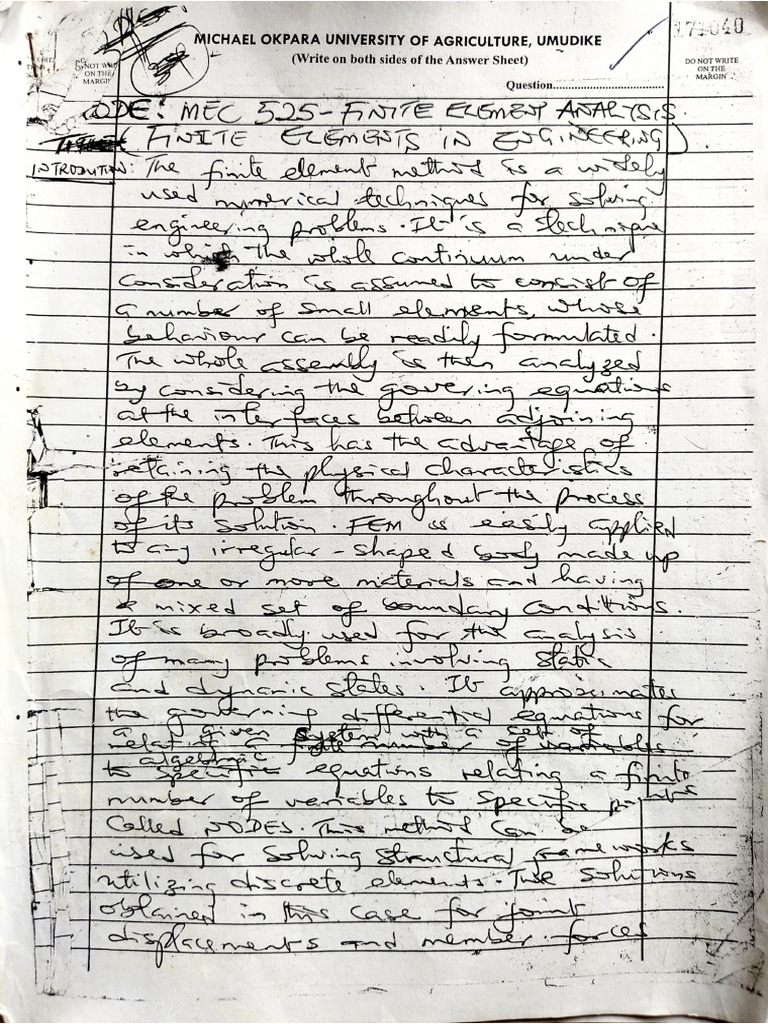 171040
MICHAEL OKPARA UNIVERSITY OF AGRICULTURE, UMUDIKE
(Write on both sides of the Answer Sheet)
Question
DO NOT WRITE
ON THE
MARGIN
DO NOT WRITE
ON THE
MARGIN
CODE: MEC 525 - FINITE ELEMENT ANALYSIS.
(FINITE ELEMENTS IN ENGINEERING)
INTRODUTION: The finite element method is a widely
used numerical techniques for solving
engineering problems. It is a technique
in which the whole continuum under
consideration is assumed to consist of
a number of small elements, whose
behaviour can be readily formulated.
The whole assembly is then analyzed
by considering the govering equations
at the interfaces between adjoining
elements. This has the advantage of
retaining the physical characteristics
of the problem throughout the process
of its solution. FEM is easily applied
to any irregular-shaped body made up
of one or more materials and having
a mixed set of boundary conditions.
It is broadly used for the analysis
of many problems involving static
and dynamic states. It approximates
the governing differential equations for
a given system with a set of
relating a finite number of variables
algebraic
to specific equations relating a finite
number of variables to specific points
called NODES. This method can be
used for solving structural frameworks
utilizing discrete elements. The solutions
obtained in this case for joint
displacements and member forces